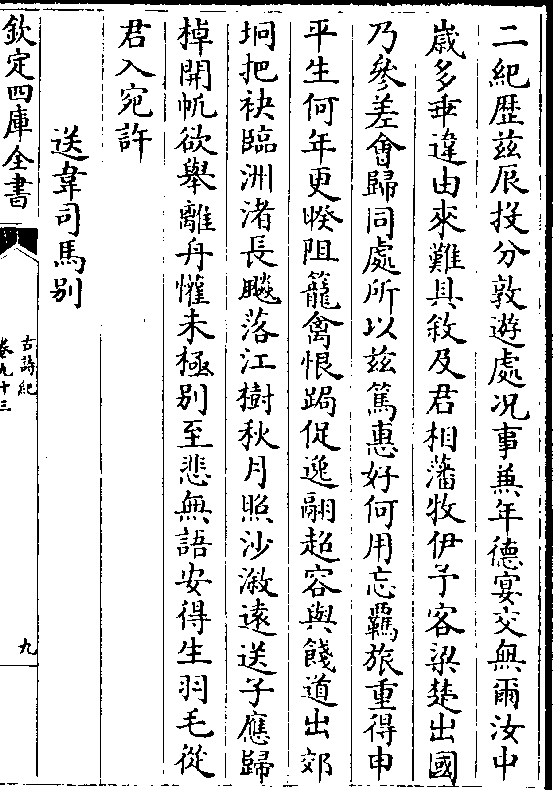 二紀歴兹辰投分敦遊處况事兼年德宴交無爾汝中
歲多乖違由來難具敘及君相藩牧伊予客梁楚出國
乃參差會歸同處所以兹篤惠好何用忘羈旅重得申
平生何年更暌阻籠禽恨跼促逸翮超容與餞道出郊
坰把袂臨洲渚長飈落江樹秋月照沙溆遠送子應歸
棹開帆欲舉離舟懽未極别至悲無語安得生羽毛從
君入宛許
送韋司馬别
欽定四庫全書
古詩紀
卷九十三
九